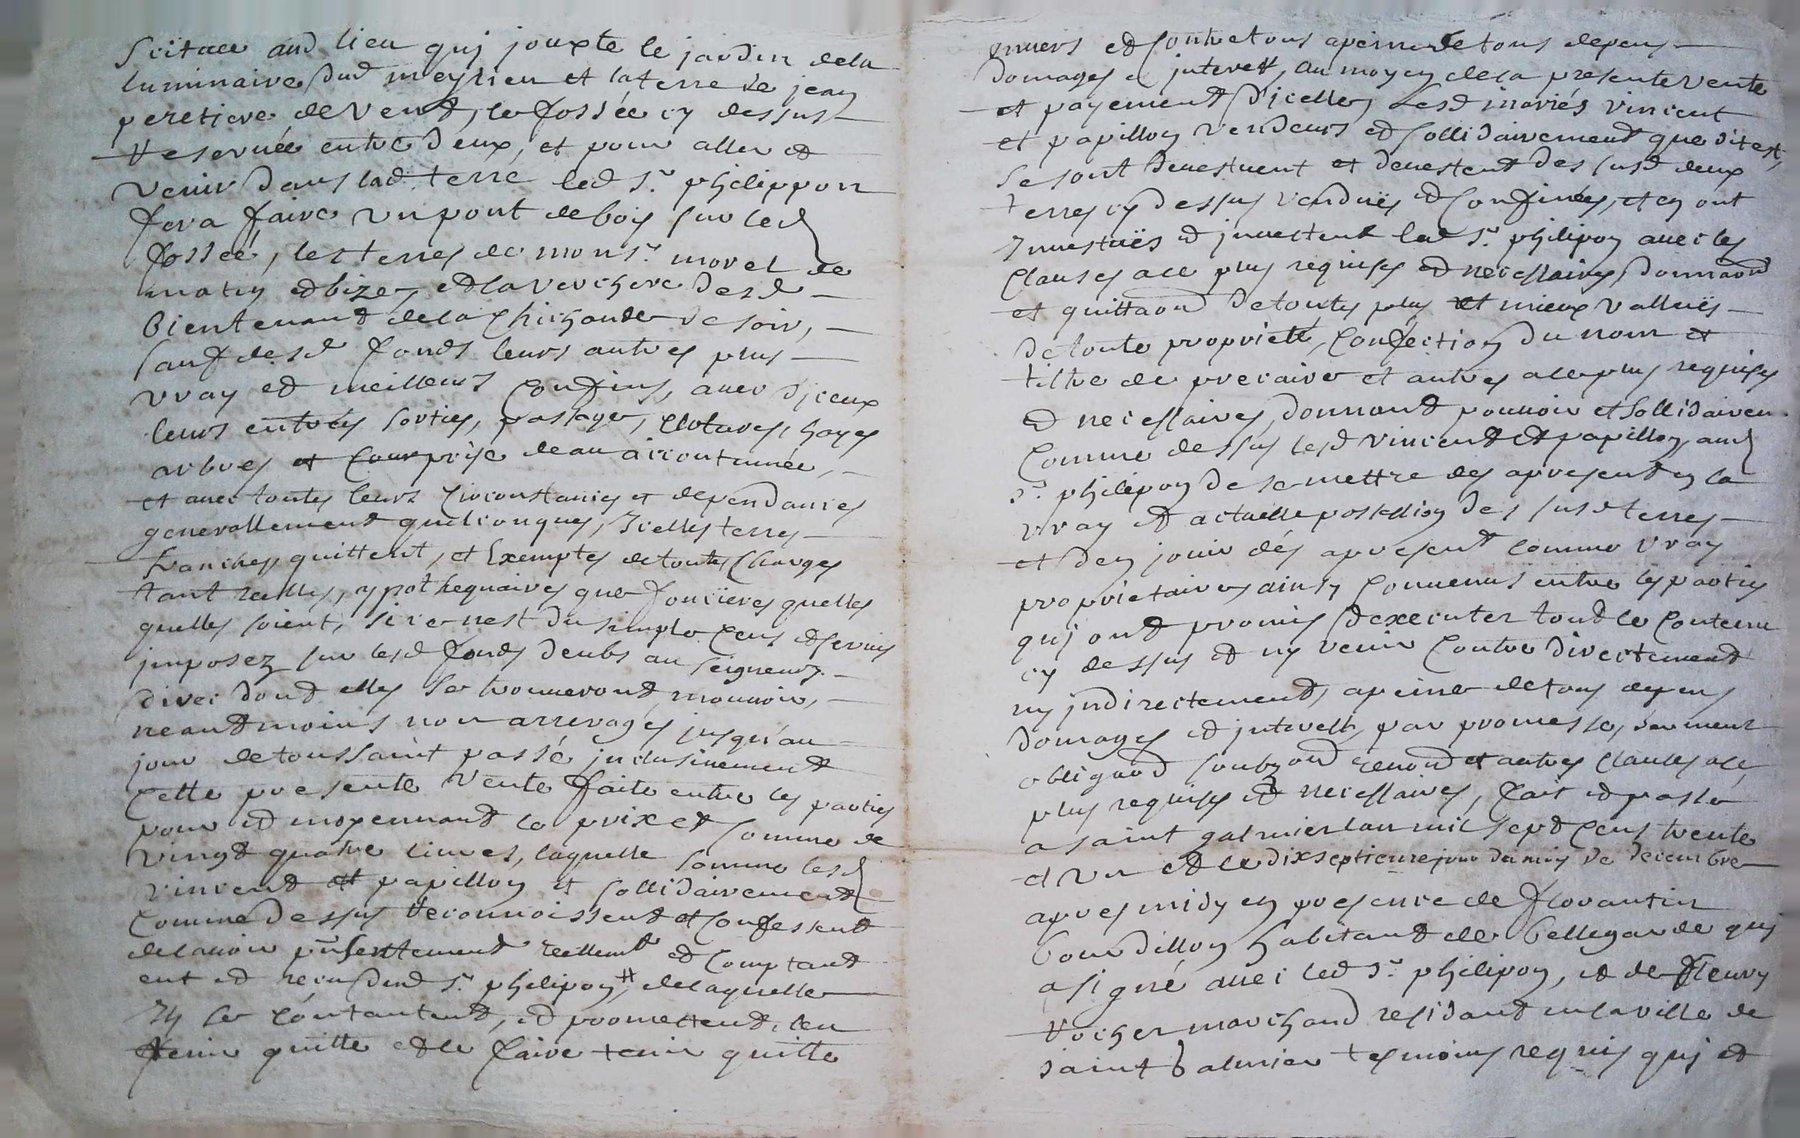 scituee aud lieu quj jouxte le jardin dela
luminaire dud meylieu et la terre de jean
peretiere de vend, le fossée cy dessus
reservée entre deux, et pour aller et
venir dans lad. terre led sr. philippon
fera faire un pont de bois sur led
fossée, les terres de monsr. morel de
matin et bize, et la verchere desd
bientenant de la Chichoude de soir,
sauf desd fonds leurs autres plus
vray et meilleurs confins, avec d'jceux
leurs entrées sorties, passage, clotures, hayes
arbres et courprise deau acoutumée,
et avec toutes leurs circonstances et dependances
generallement quelconques, Jcelles terres
franches quittent, et Exemptes de toutes charges
tant reelles, ypothequaires que foncieres quelles
quelles soient, si ce nest du simple cens et servis
jmposez sur lesd fonds deubs au seigneurs
direc dont elles se trouveront mouvoir,
neantmoins non arrerages jusqu'au
jour de toussaint passé jnclusivement
Cette presente vente faite entre les parties
pour et moyennant le prix et somme de
vingt quatre livres, laquelle somme lesd
vincent et papillon et sollidairement
comme dessus reconnoissent et confessent
de lavoir presentement reellemt et comptant
eut et receu dud sr. philipon # de laquelle
Jls se contantent, et promettent len
tenir quitte et le faire tenir quitte
envers et contre tous a peine de tous depens
domages et jnterest, au moyen de la presente vente
et payement d'icelle, Lesd mariés vincent
et papillon vendeurs et sollidairement que dit est,
se sont devestuent et devestent des susd deux
terres cy dessus venduës et confinées, et en ont
Jnvestuës et jnvestent led sr. philipon avec les
clauses a ce plus requises et necessaires, donnant
et quittant de toutes plus et mieux valluës
de toute proprieté, confection du nom et
tiltre de precaire et autres a ce plus requises
et necessaires, donnant pouvoir et sollidairemt
comme dessus lesd vincent et papillon, aud
sr. philipon de se mettre des apresent en la
vray et actuelle possession des susd terres
et den jouir dés apresent comme vray
proprietaires ainsy convenus entre les parties
quj ont promis dexecuter tout le contenu
cy dessus et ny venir contre directement
ny jndirectement, a peine de tous depens
domages et jnterests, par promesse, serment
obligaon soubzon renon et autres clauses a ce
plus requises et necessaires, fait et passé
a saint galmier lan mil sept cens trente
et un et le dixseptieme jour du mois de decembre
apres midy en presence de florantin
bourdillon habitant de bellegarde quj
a signé avec led sr. philipon, et de fleury
rocher marchand residant en la ville de
saint galmier tesmoins requis quj et